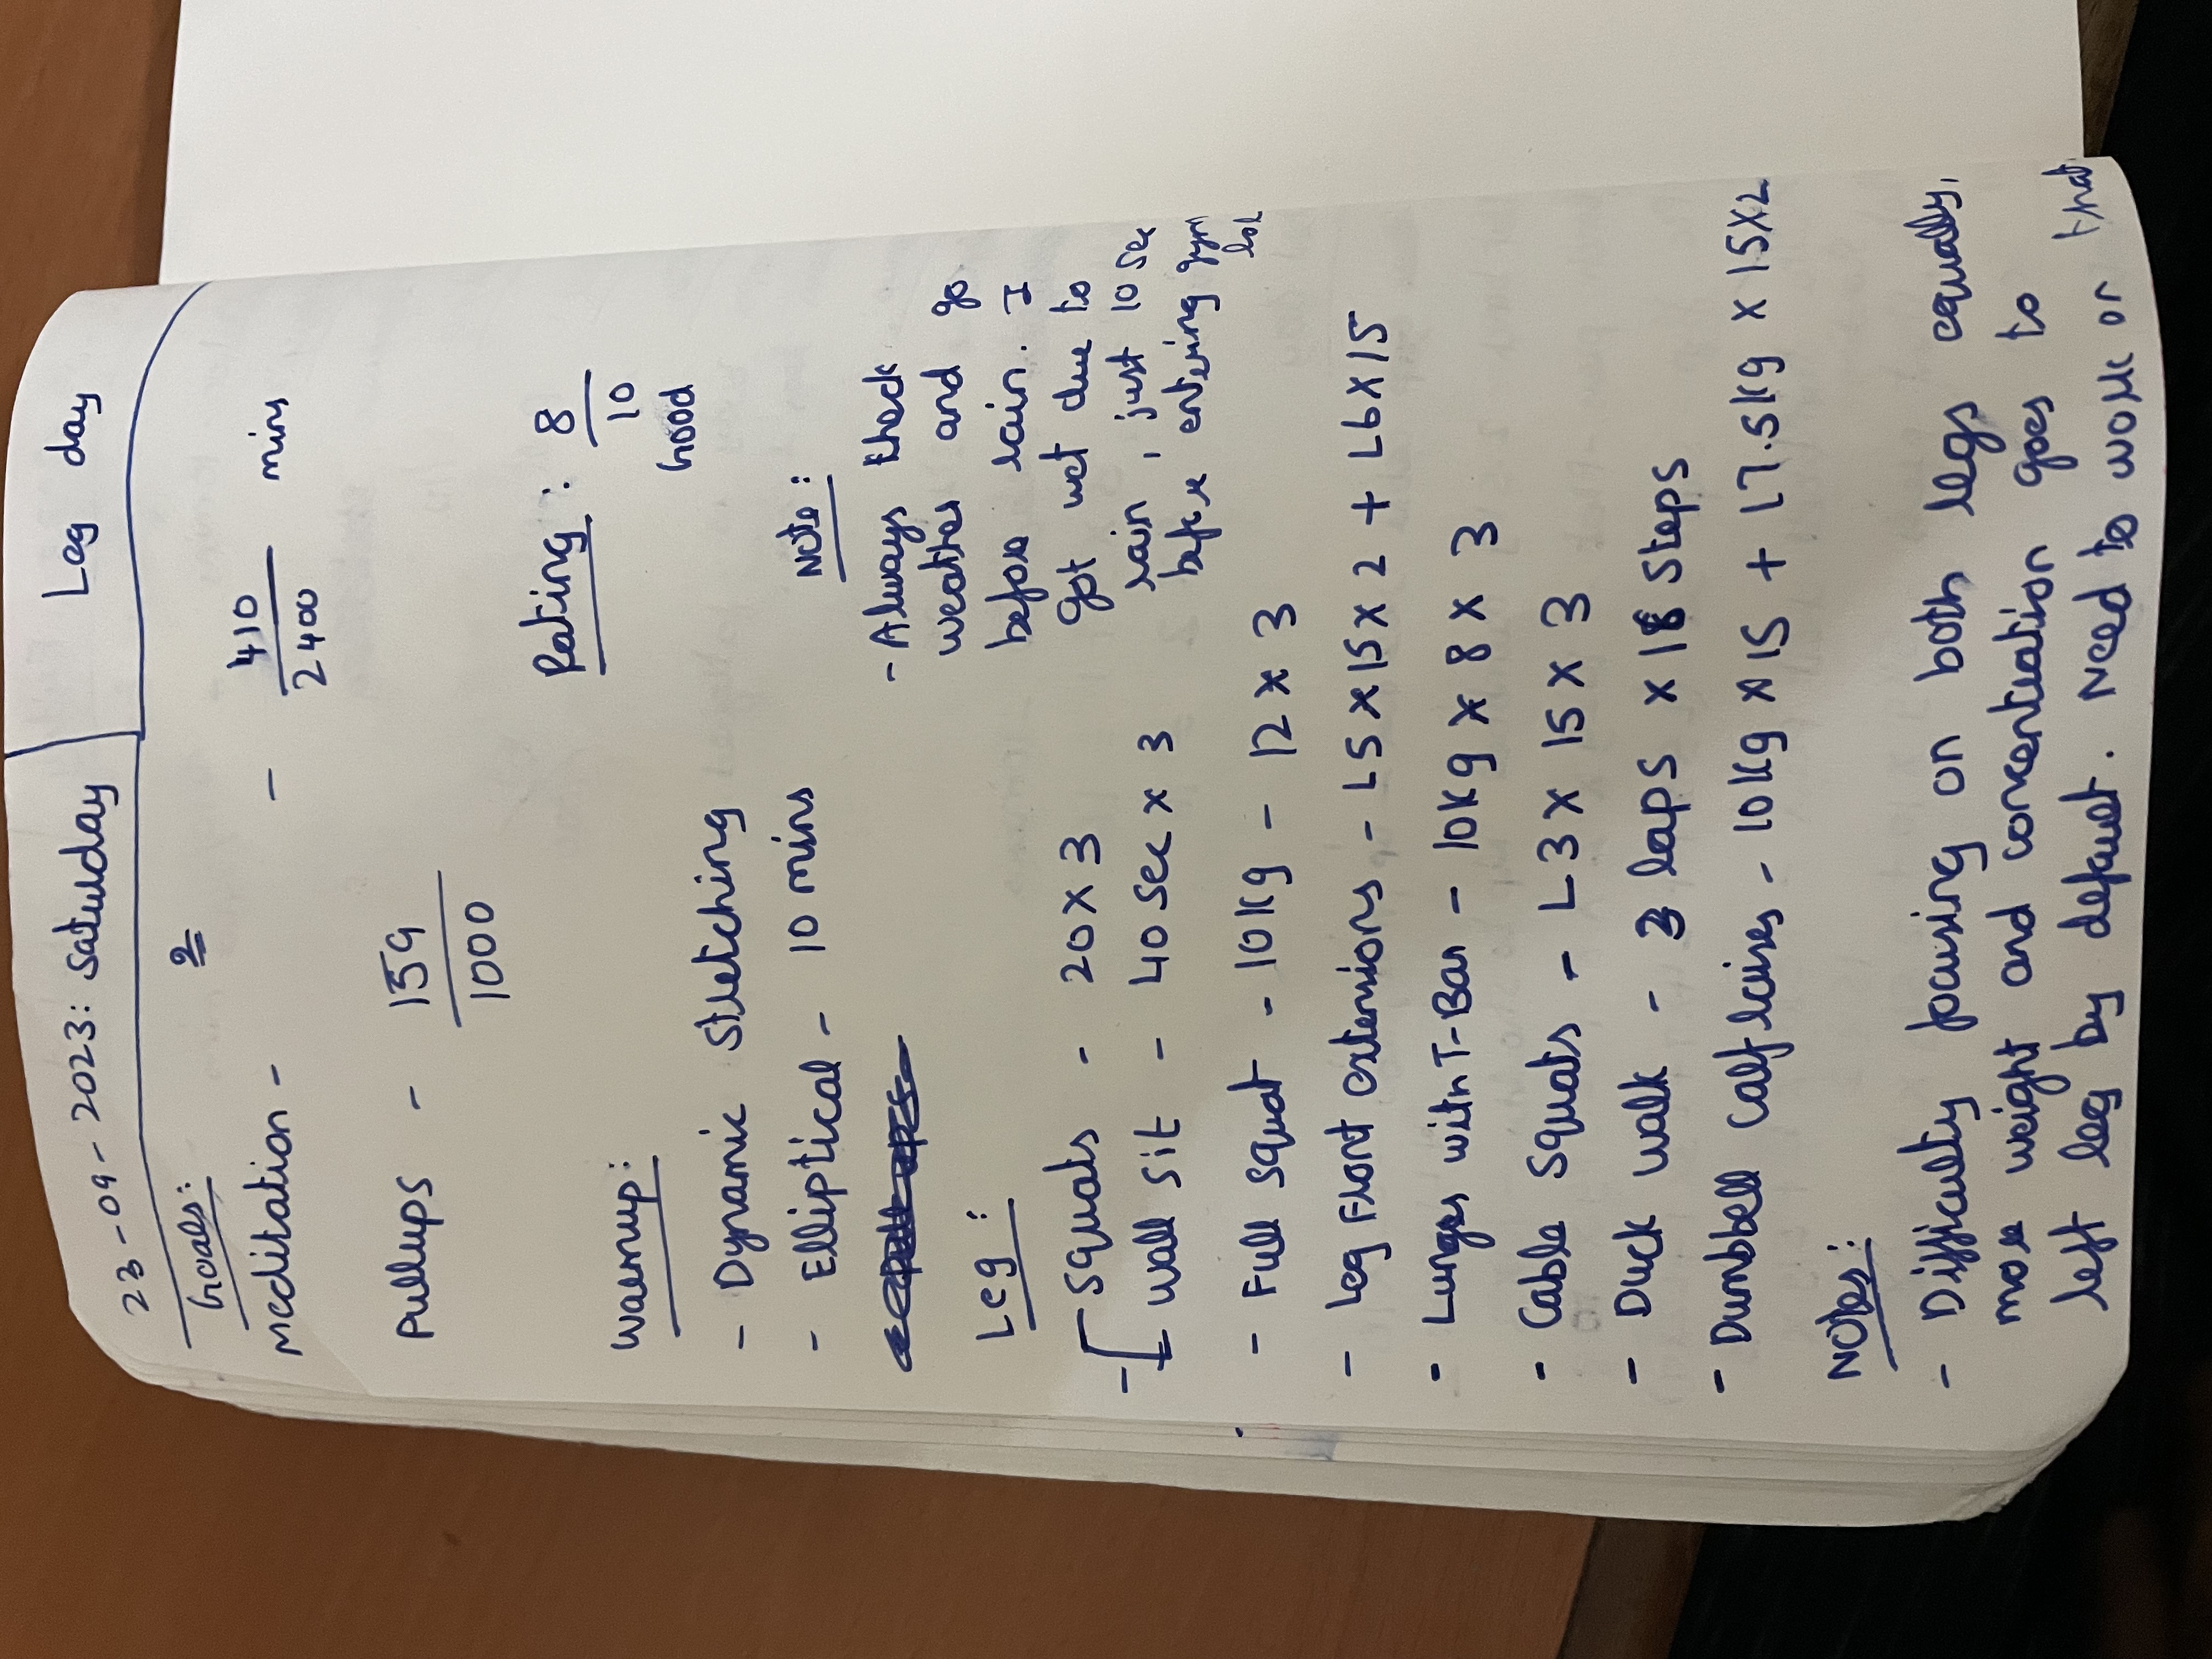 23-09-2023: Saturday Leg day
Goals:
Meditation - - 410/2400 mins
Pullups - 159/1000
Rating: 8/10
Good
Warmup:
- Dynamic Stretching
- Elliptical - 10 mins
Note:
- Always check
weather and go
before rain. I
got wet due to
rain, just 10 sec
before entering gym
lol
Leg:
- Squats - 20 x 3
wall sit - 40 sec x 3
- Full squat - 10kg - 12 x 3
- Leg Front extensions - L5 x 15 x 2 + L6 x 15
- Lunges with T-Bar - 10kg x 8 x 3
- Cable squats - L3 x 15 x 3
- Duck walk - 3 laps x 18 steps
- Dumbbell calf raises - 10kg x 15 + 17.5kg x 15 x 2
Notes:
- Difficulty focusing on both legs equally,
more weight and concentration goes to
left leg by default. Need to work on that